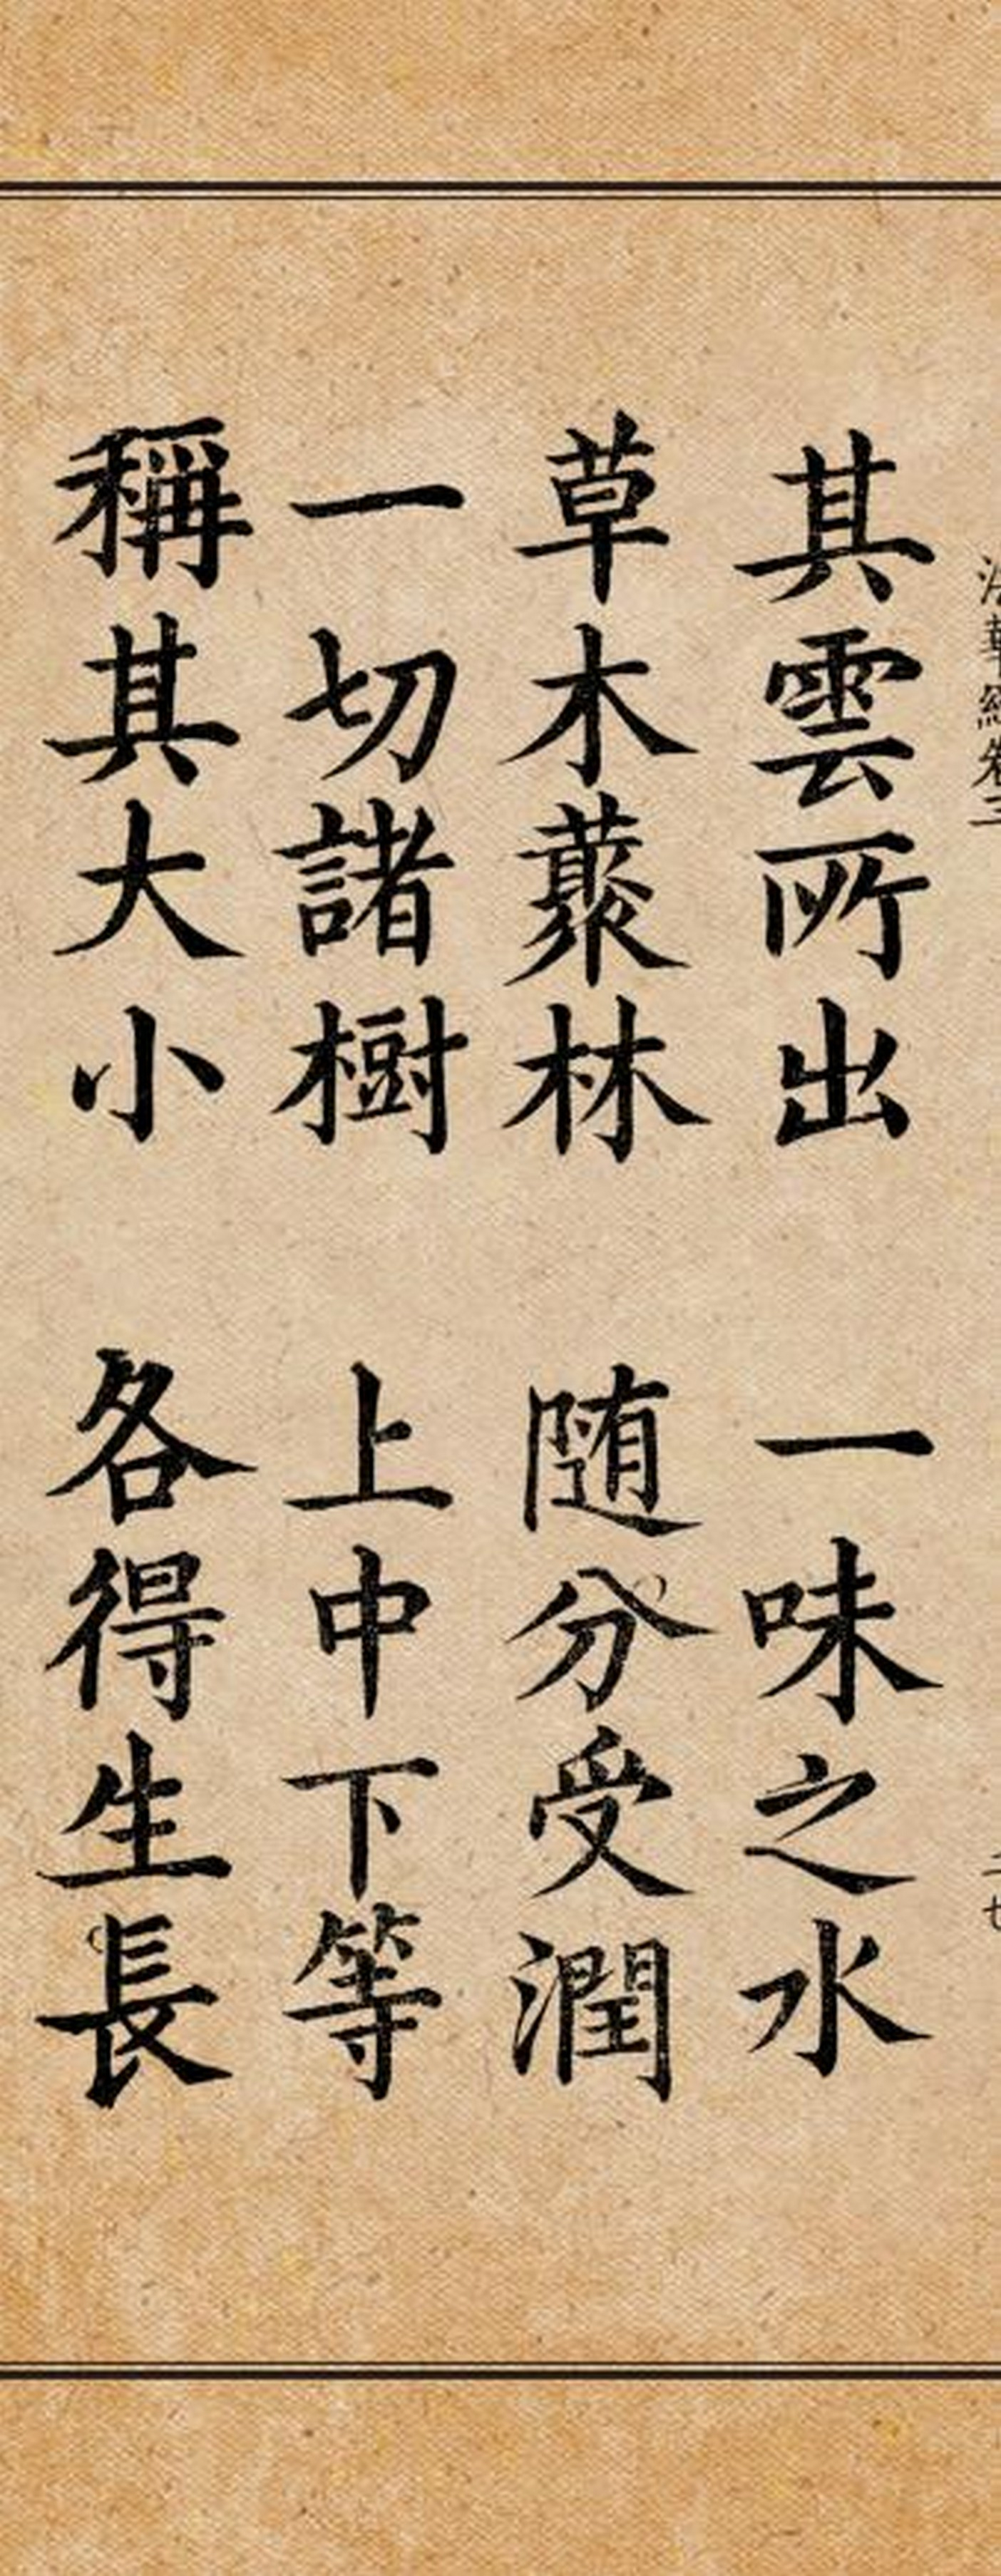 法華經卷三 二七
其雲所出 一味之水
草木藂林 随分受潤
一切諸樹 上中下等
稱其大小 各得生長